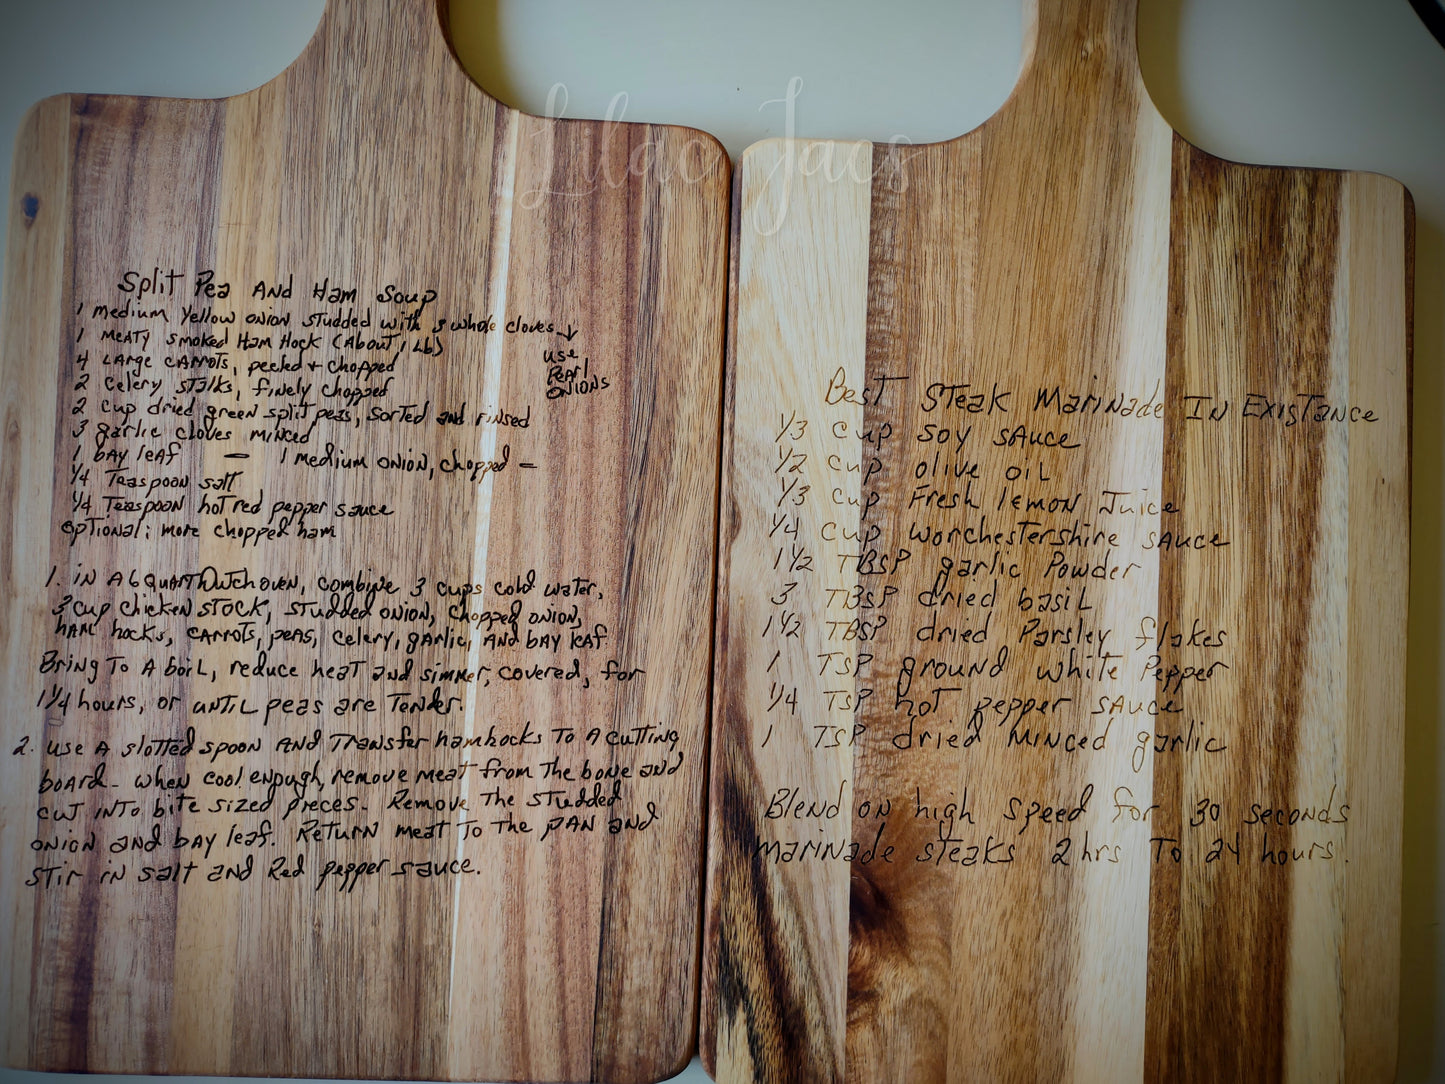 Lilac Jacs
Split Pea And Ham Soup
1 medium yellow onion studded with 3 whole cloves →
use
pearl
onions
1 meaty smoked ham hock (about 1 lb)
4 large carrots, peeled + chopped
2 celery stalks, finely chopped
2 cup dried green split peas, sorted and rinsed
3 garlic cloves minced
1 bay leaf — 1 medium onion, chopped —
1/4 Teaspoon salt
1/4 Teaspoon hot red pepper sauce
optional: more chopped ham
1. in a 6 quart Dutch oven, combine 3 cups cold water,
3 cup chicken stock, studded onion, chopped onion,
ham hocks, carrots, peas, celery, garlic, and bay leaf.
Bring to a boil, reduce heat and simmer, covered, for
1 1/4 hours, or until peas are tender.
2. use a slotted spoon and transfer ham hocks to a cutting
board - when cool enough, remove meat from the bone and
cut into bite sized pieces - Remove the studded
onion and bay leaf. Return meat to the pan and
stir in salt and Red pepper sauce.
Best Steak Marinade In Existance
1/3 cup soy sauce
1/2 cup olive oil
1/3 cup fresh lemon juice
1/4 cup worchestershire sauce
1 1/2 TBSP garlic powder
3 TBSP dried basil
1 1/2 TBSP dried parsley flakes
1 TSP ground white pepper
1/4 TSP hot pepper sauce
1 TSP dried minced garlic
Blend on high speed for 30 seconds
marinade steaks 2 hrs to 24 hours.